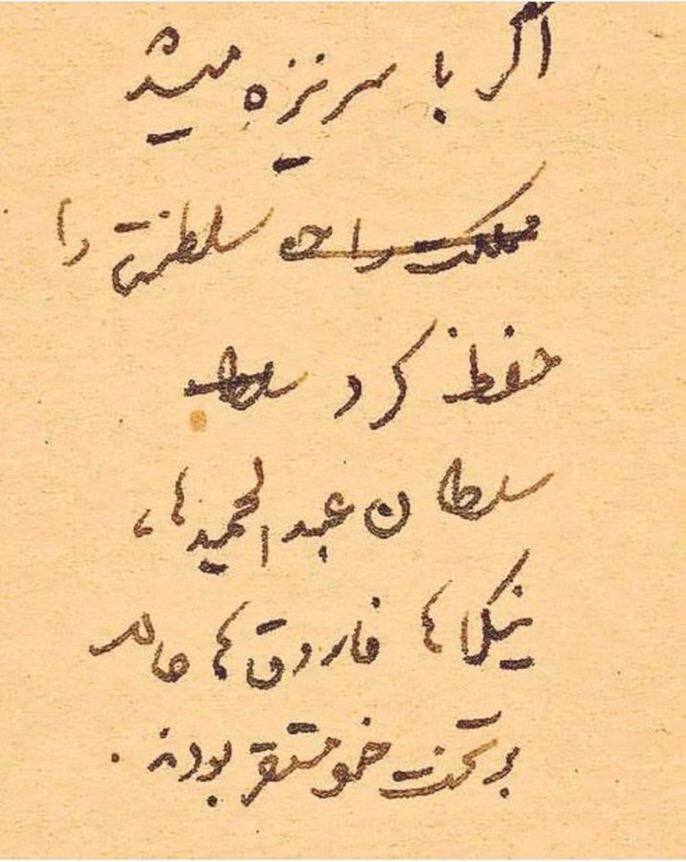 اگر با سرنیزه میشد
مملکت را سلطنت را
حفظ کرد سلط
سلطان عبدالحمیدها،
نیکلاها فاروقها حالا
بر تخت خود مستقر بودند.